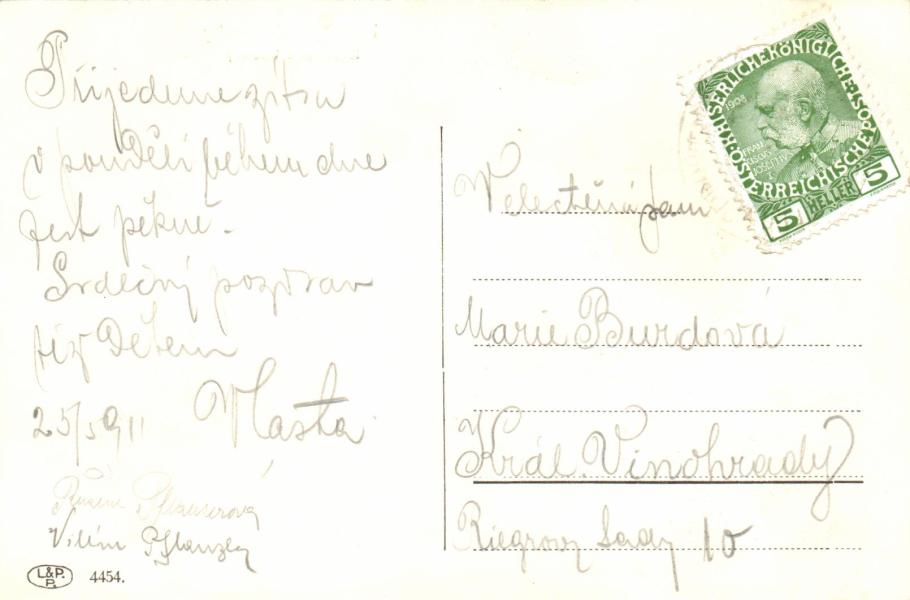 Přijedeme zítra
v pondělí během dne
jest pěkně.
Srdečný pozdrav
též Dětem
25/5 911 Vlasta
Růžena Pflanzerová
Vilém Pflanzer
L&P.
P.
4454.
KAISERLICHE KÖNIGLICHE ÖSTERREICHISCHE POST
1908
FRANZ
JOSEF I
5 HELLER 5
Velectěná paní
Marie Burdová
Král. Vinohrady
Riegrovy Sady 10